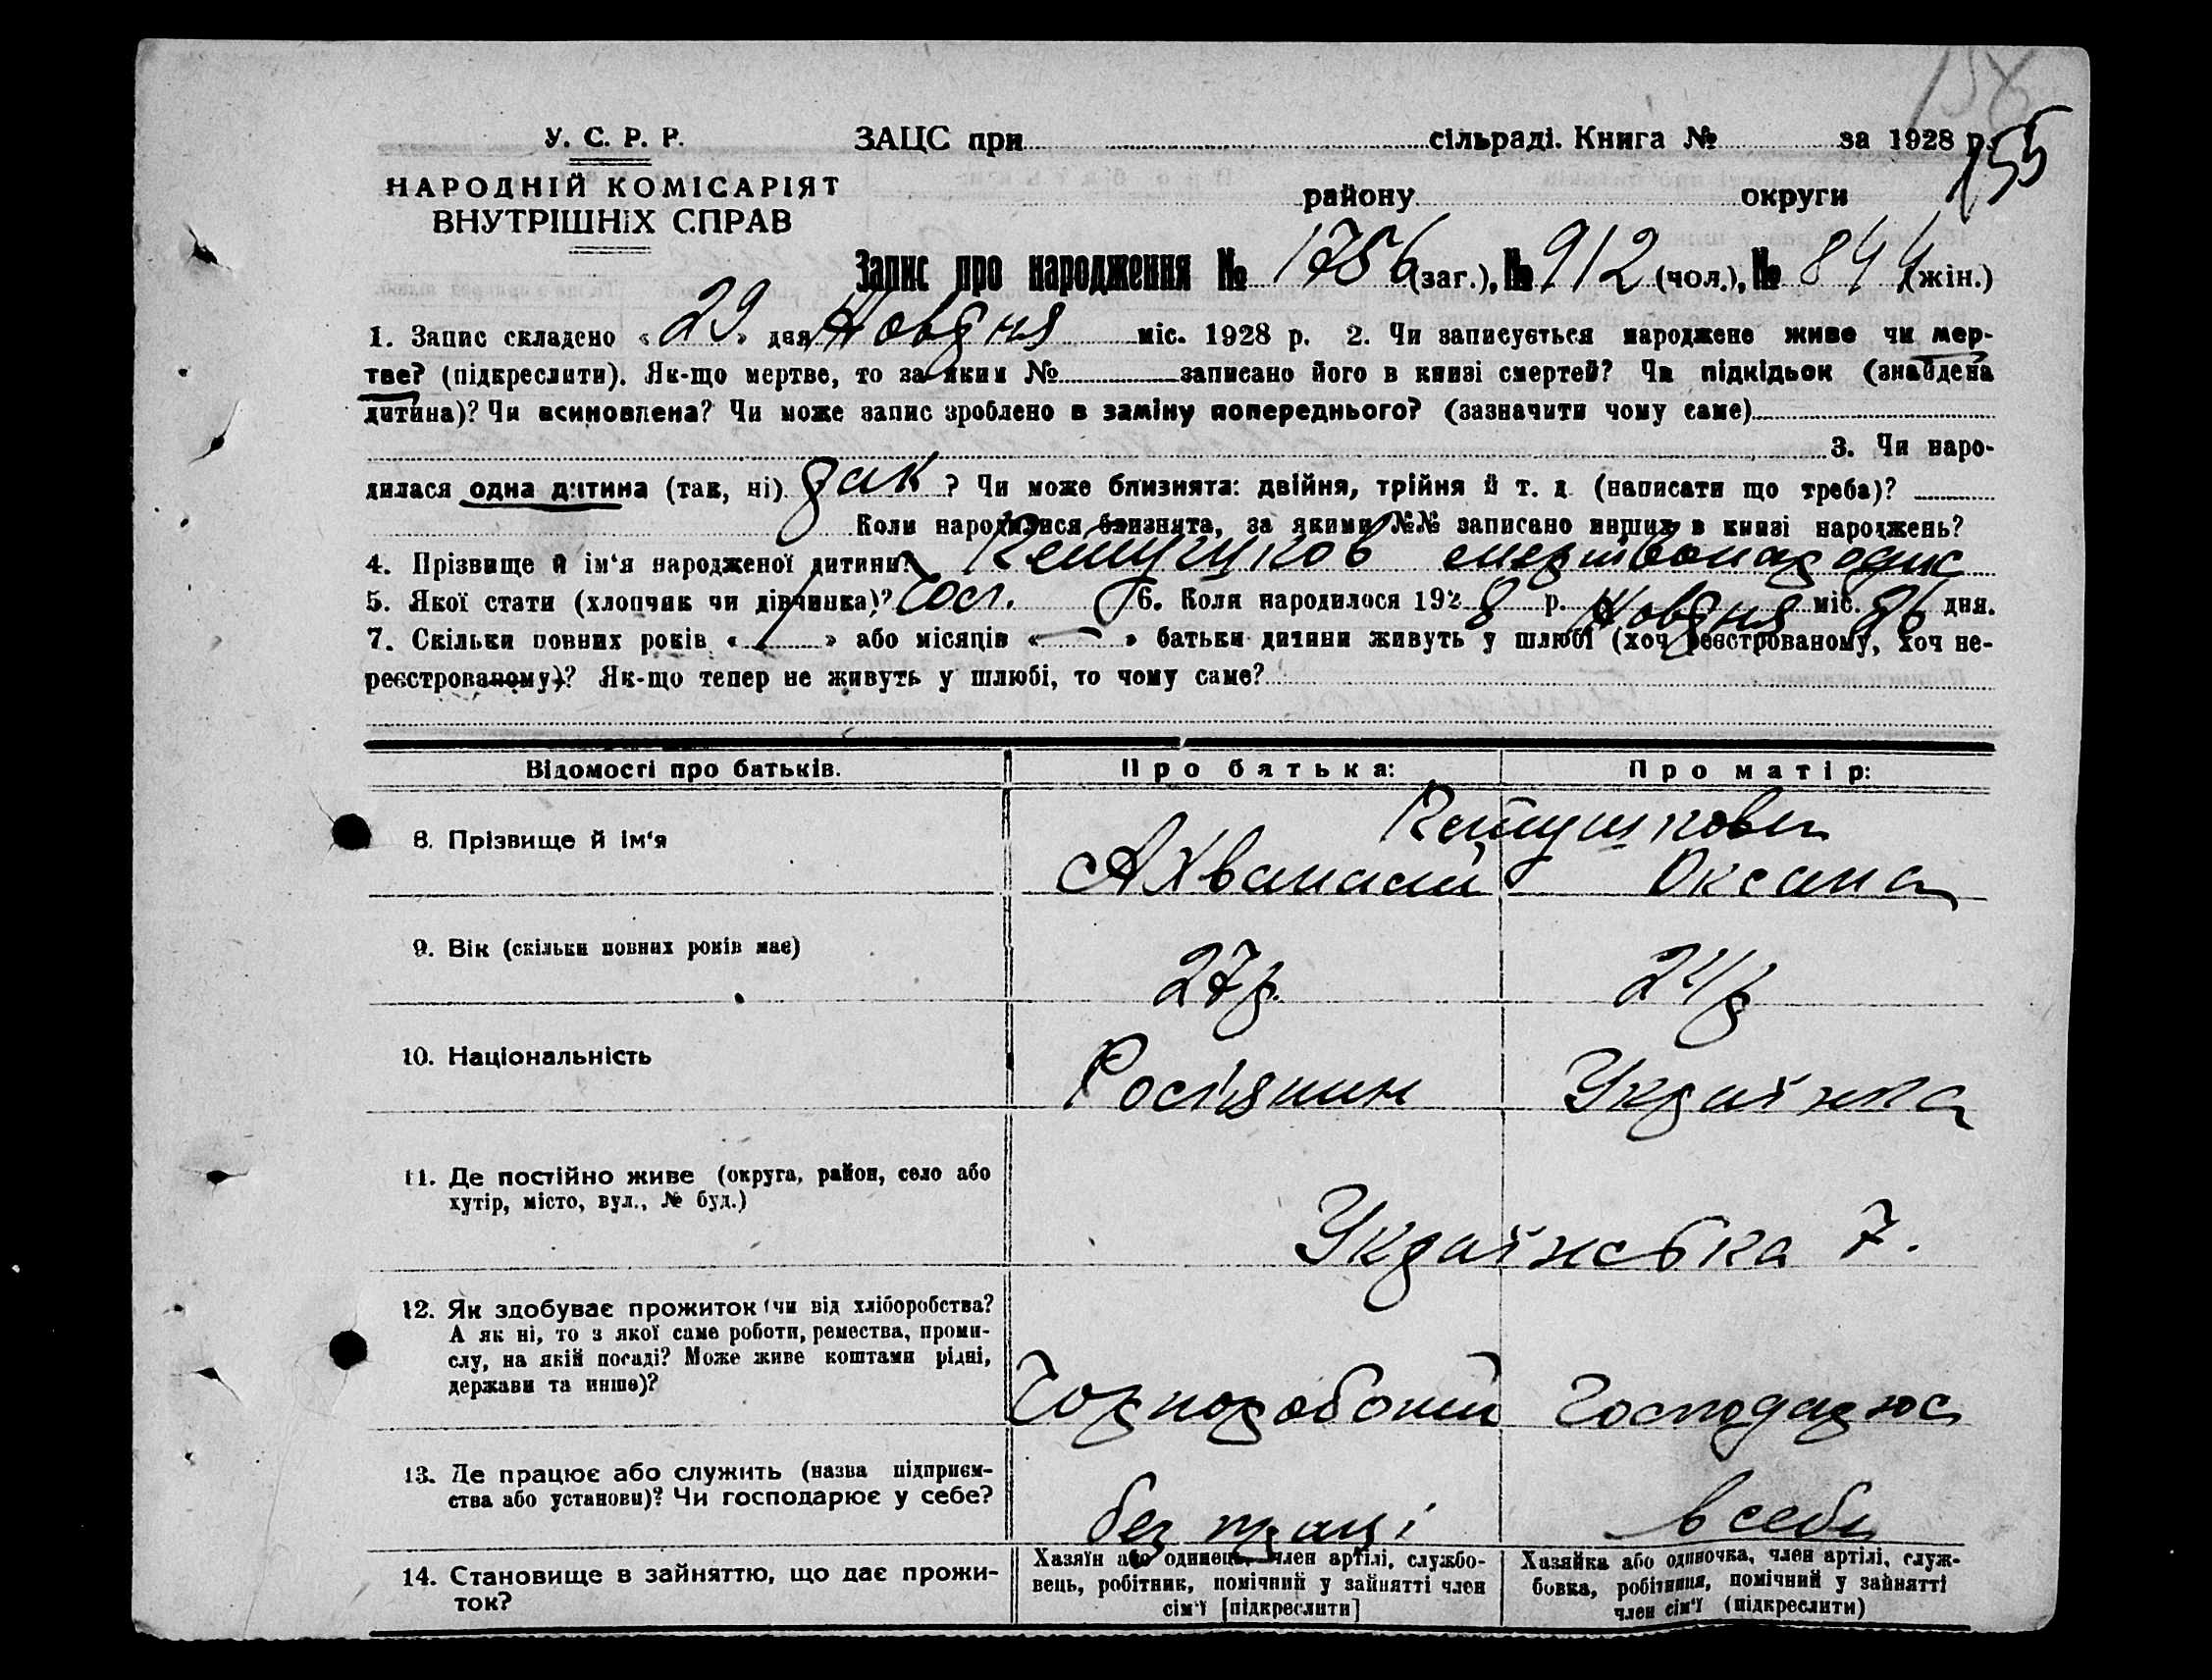 155
У. С. Р. Р.
НАРОДНІЙ КОМІСАРІЯТ
ВНУТРІШНІХ СПРАВ
ЗАЦС при сільраді. Книга № за 1928 р.
району округи
Запис про народження № 1756 (заг.), № 912 (чол.), № 844 (жін.)
1. Запис складено « 29 » дня Жовтня міс. 1928 р. 2. Чи записується народжене живе чи мер-
тве? (підкреслити). Як-що мертве, то за яким № записано його в книзі смертей? Чи підкідьок (знайдена
дитина)? Чи всиновлена? Чи може запис зроблено в заміну попереднього? (зазначити чому саме)
3. Чи наро-
дилася одна дитина (так, ні) так ? Чи може близнята: двійня, трійня й т. д. (написати що треба)?
Коли народилися близнята, за якими №№ записано инших в книзі народжень?
4. Прізвище й ім‘я народженої дитини?
5. Якої статі (хлопчяк чи дівчинка)? 6. Коли народилося 1928 р. Жовтня міс. 26 дня.
7. Скільки повних років « 1 » або місяців « — » батьки дитини живуть у шлюбі (хоч реєстрованому, хоч не-
реєстрованому)? Як-що тепер не живуть у шлюбі, то чому саме?
Відомості про батьків. Про батька: Про матір:
8. Прізвище й ім‘я
Оксана
9. Вік (скільки повних років має) 27 р.
10. Національність Росіянин Українка
11. Де постійно живе (округа, район, село або
хутір, місто, вул., № буд.)
Українська 7.
12. Як здобуває прожиток (чи від хліборобства?
А як ні, то з якої саме роботи, ремества, проми-
слу, на якій посаді? Може живе коштами рідні,
держави та инше)?
Чорноробочий Господарює
13. Де працює або служить (назва підприєм-
ства або установи)? Чи господарює у себе?
без праці в себе
14. Становище в зайняттю, що дає прожи-
ток?
Хазяїн або одинець, член артілі, службо-
вець, робітник, помічний у зайнятті член
сім‘ї [підкреслити]
Хазяйка або одиночка, член артілі, служ-
бовка, робітниця, помічний у зайнятті
член сім‘ї (підкреслити)